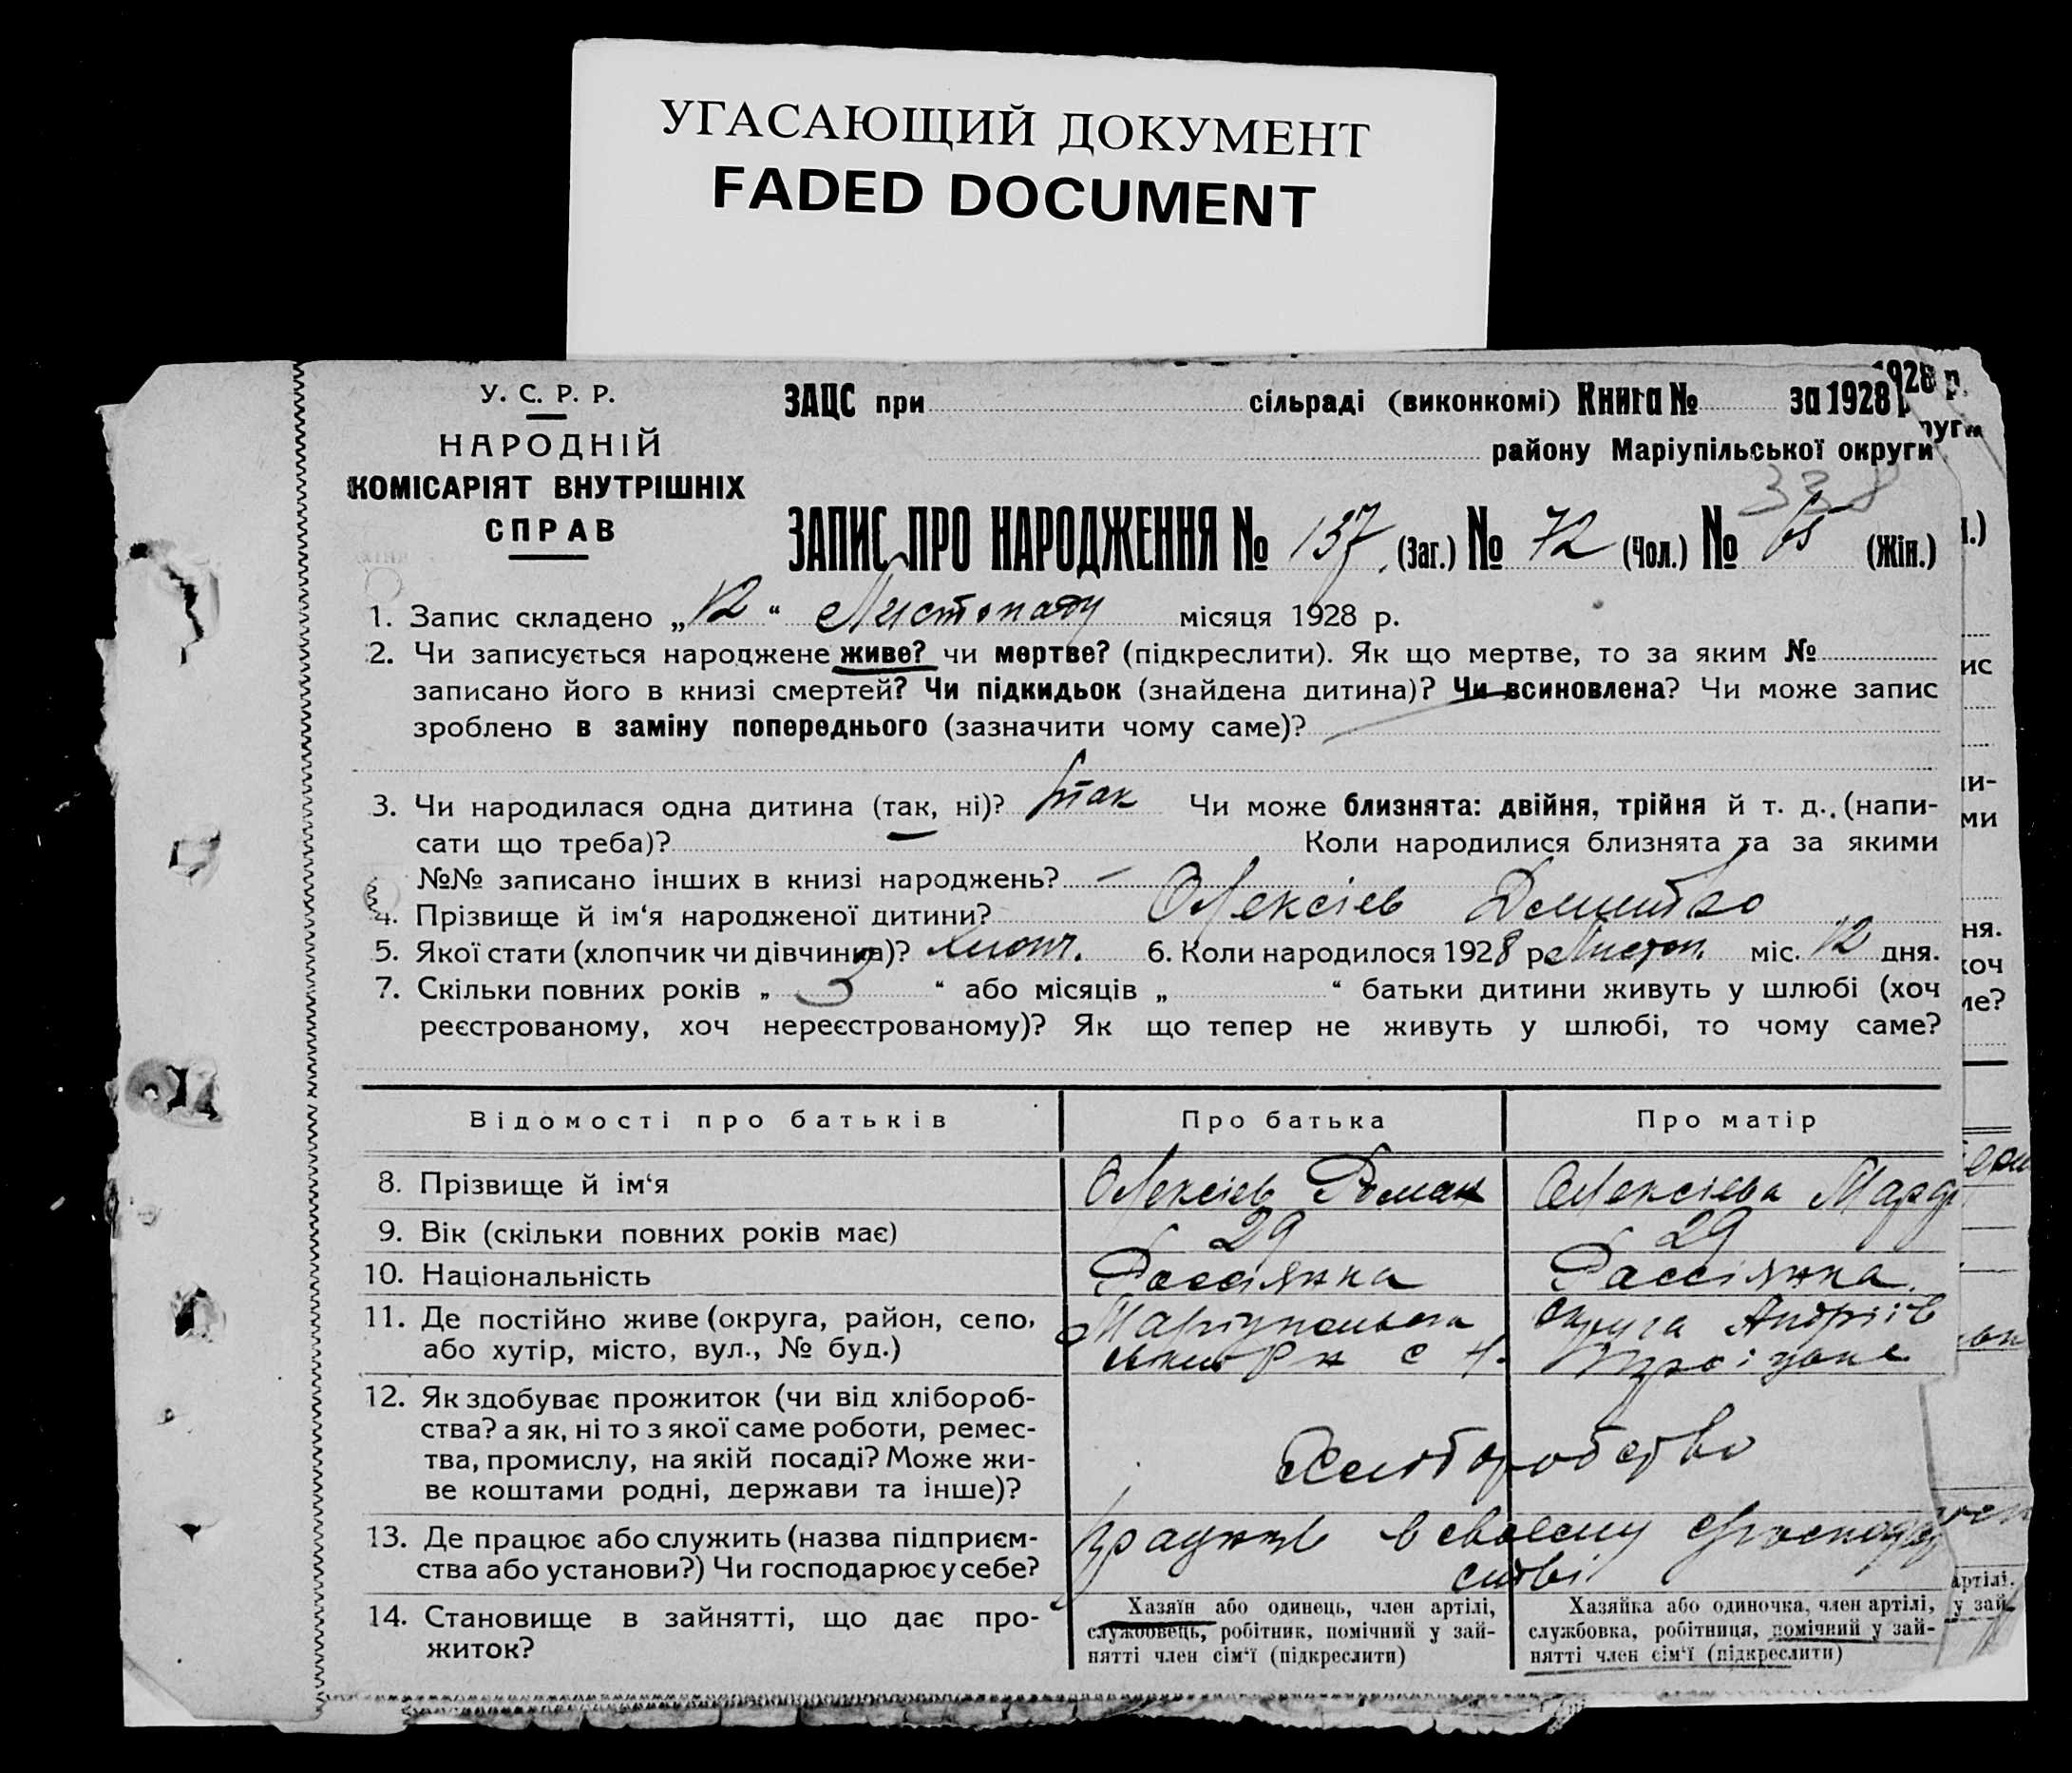 УГАСАЮЩИЙ ДОКУМЕНТ
FADED DOCUMENT
У. С. Р. Р.
НАРОДНІЙ
КОМІСАРІЯТ ВНУТРІШНІХ
СПРАВ
ЗАЦС при сільраді (виконкомі) Книга № за 1928
району Маріупільської округи
338
ЗАПИС ПРО НАРОДЖЕННЯ № 137 (Заг.) № 72 (Чол.) № 65 (Жін.)
1. Запис складено „12“ Листопаду місяця 1928 р.
2. Чи записується народжене живе? чи мертве? (підкреслити). Як що мертве, то за яким №
записано його в книзі смертей? Чи підкидьок (знайдена дитина)? Чи всиновлена? Чи може запис
зроблено в заміну попереднього (зазначити чому саме)?
3. Чи народилася одна дитина (так, ні)? так Чи може близнята: двійня, трійня й т. д. (напи-
сати що треба)? Коли народилися близнята та за якими
№№ записано інших в книзі народжень? —
4. Прізвище й ім‘я народженої дитини? Олексієв
5. Якої стати (хлопчик чи дівчинка)? хлопч. 6. Коли народилося 1928 р. Листоп. міс. 12 дня.
7. Скільки повних років „ 3 “ або місяців „ “ батьки дитини живуть у шлюбі (хоч
реєстрованому, хоч нереєстрованому)? Як що тепер не живуть у шлюбі, то чому саме?
Відомості про батьків Про батька Про матір
8. Прізвище й ім‘я Олексієв Роман Олексієва
9. Вік (скільки повних років має) 29 29
10. Національність Россіянка Рассіянка
11. Де постійно живе (округа, район, село, Маріупольска округа Андріїв
або хутір, місто, вул., № буд.) с
12. Як здобуває прожиток (чи від хлібороб-
ства? а як, ні то з якої саме роботи, ремес-
тва, промислу, на якій посаді? Може жи-
ве коштами родні, держави та інше)?
Хліборобство
13. Де працює або служить (назва підприєм- працює в своему
ства або установи?) Чи господарює у себе? стві
14. Становище в зайнятті, що дає про-
житок?
Хазяїн або одинець, член артілі,
службовець, робітник, помічний у зай-
нятті член сім‘ї (підкреслити)
Хазяйка або одиночка, член артілі,
службовка, робітниця, помічний у зай-
нятті член сім‘ї (підкреслити)